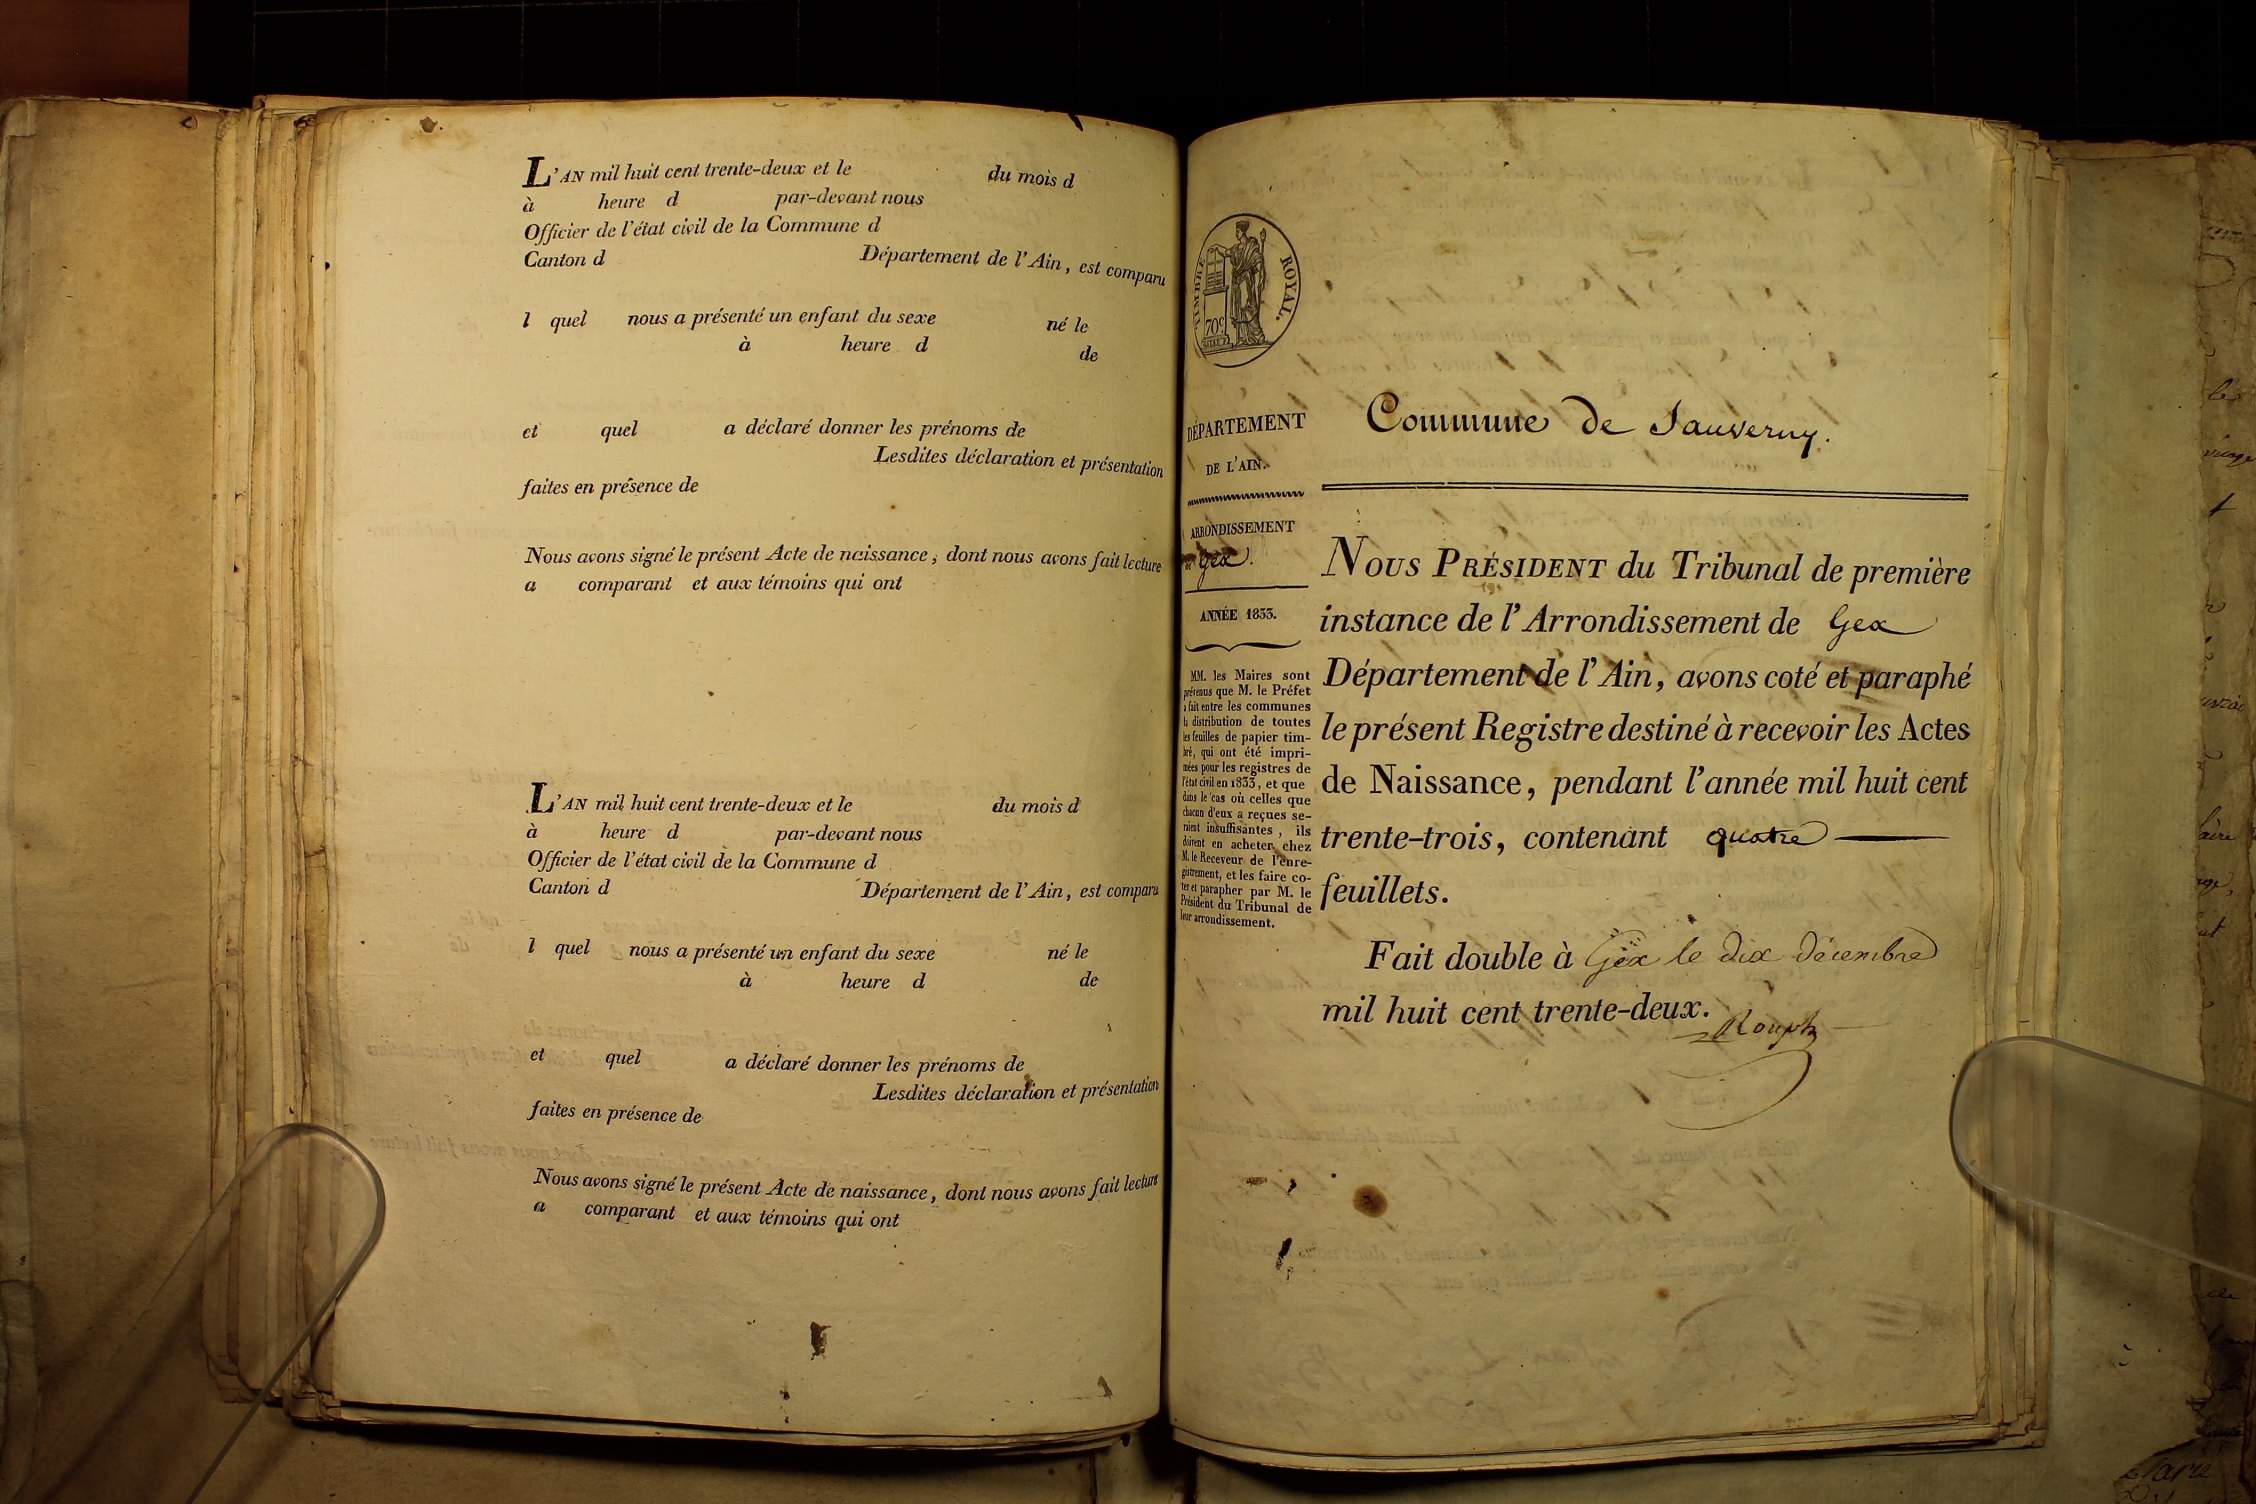 L'AN mil huit cent trente-deux et le du mois d
à heure d par-devant nous
Officier de l'état civil de la Commune d
Canton d Département de l'Ain, est comparu
l quel nous a présenté un enfant du sexe né le
à heure d de
et quel a déclaré donner les prénoms de
Lesdites déclaration et présentation
faites en présence de
Nous avons signé le présent Acte de naissance, dont nous avons fait lecture
a comparant et aux témoins qui ont
L'AN mil huit cent trente-deux et le du mois d
à heure d par-devant nous
Officier de l'état civil de la Commune d
Canton d Département de l'Ain, est comparu
l quel nous a présenté un enfant du sexe né le
à heure d de
et quel a déclaré donner les prénoms de
Lesdites déclaration et présentation
faites en présence de
Nous avons signé le présent Acte de naissance, dont nous avons fait lecture
a comparant et aux témoins qui ont
TIMBRE ROYAL.
70c
DÉPARTEMENT
DE L'AIN.
ARRONDISSEMENT
de Gex.
ANNÉE 1833.
MM. les Maires sont
prévenus que M. le Préfet
a fait entre les communes
la distribution de toutes
les feuilles de papier tim-
bré, qui ont été impri-
mées pour les registres de
l'état civil en 1833, et que
dans le cas où celles que
chacun d'eux a reçues se-
raient insuffisantes, ils
doivent en acheter chez
M. le Receveur de l'enre-
gistrement, et les faire co-
ter et parapher par M. le
Président du Tribunal de
leur arrondissement.
Commune de Sauverny.
NOUS PRÉSIDENT du Tribunal de première
instance de l'Arrondissement de Gex
Département de l'Ain, avons coté et paraphé
le présent Registre destiné à recevoir les Actes
de Naissance, pendant l'année mil huit cent
trente-trois, contenant quatre
feuillets.
Fait double à Gex le dix décembre
mil huit cent trente-deux.